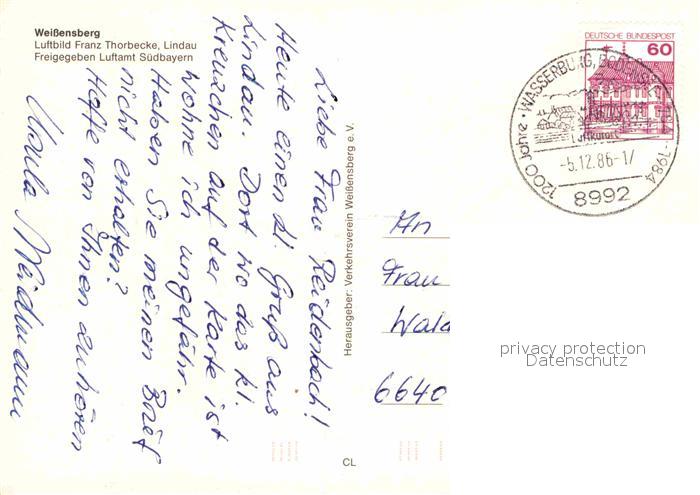 Weißensberg
Luftbild Franz Thorbecke, Lindau
Freigegeben Luftamt Südbayern
Liebe Frau Reidenbach!
Heute einen kl. Gruß aus
Lindau. Dort wo das kl.
Kreuzchen auf der Karte ist
wohne ich ungefähr.
Haben Sie meinen Brief
nicht erhalten?
Hoffe von Ihnen zu hören
Ursula
Herausgeber: Verkehrsverein Weißensberg e.V.
CL
DEUTSCHE BUNDESPOST
60
1200 Jahre · WASSERBURG, BODENSEE
Luftkurort
-1984
-5.12.86-17
8992
An
Frau
Wald
6640
privacy protection
Datenschutz